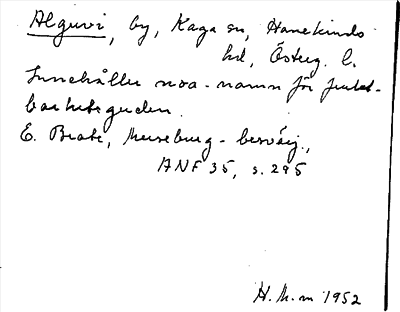 Alguvi, by, Kaga sn, Hanekinds
hd, Österg. l.
Innehåller noa-namn för frukt-
barhetsguden.
E. Brate, Merseburg-besvärj.,
ANF 35, s. 295
H. M-m 1952